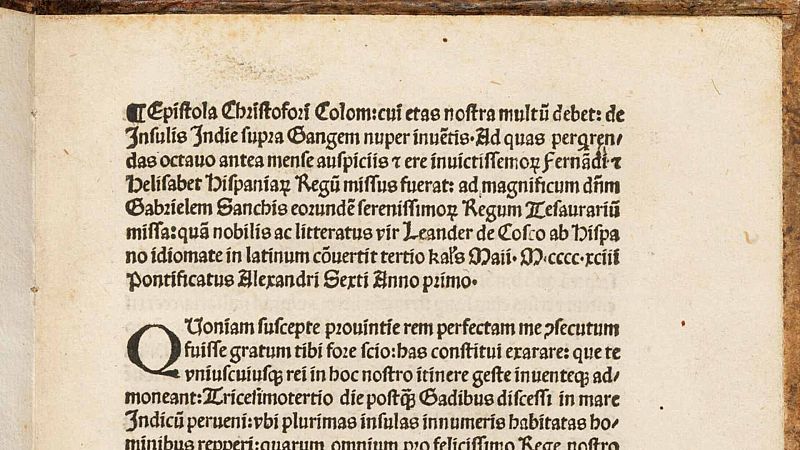 ¶ Epistola Christofori Colom: cui etas nostra multū debet: de
Insulis Indie supra Gangem nuper inuētis· Ad quas perqren-
das octauo antea mense auspiciis ⁊ ere inuictissemoꝝ Fernādi ⁊
Helisabet Hispaniaꝝ Regū missus fuerat: ad magnificum dñm
Gabrielem Sanchis eorundē serenissimoꝝ Regum Tesaurariū
missa: quā nobilis ac litteratus vir Leander de Cosco ab Hispa
no idiomate in latinum cōuertit tertio kaľs Maii· M·cccc·xciii
Pontificatus Alexandri Sexti Anno primo·
Quoniam suscepte prouintie rem perfectam me ꝯsecutum
fuisse gratum tibi fore scio: has constitui exarare: que te
vniuscuiusqꝫ rei in hoc nostro itinere geste inuenteqꝫ ad-
moneant: Tricesimotertio die postꝗ̄ Gadibus discessi in mare
Indicū perueni: vbi plurimas insulas innumeris habitatas ho-
minibus repperi: quarum omnium pro felicissimo Rege nostro